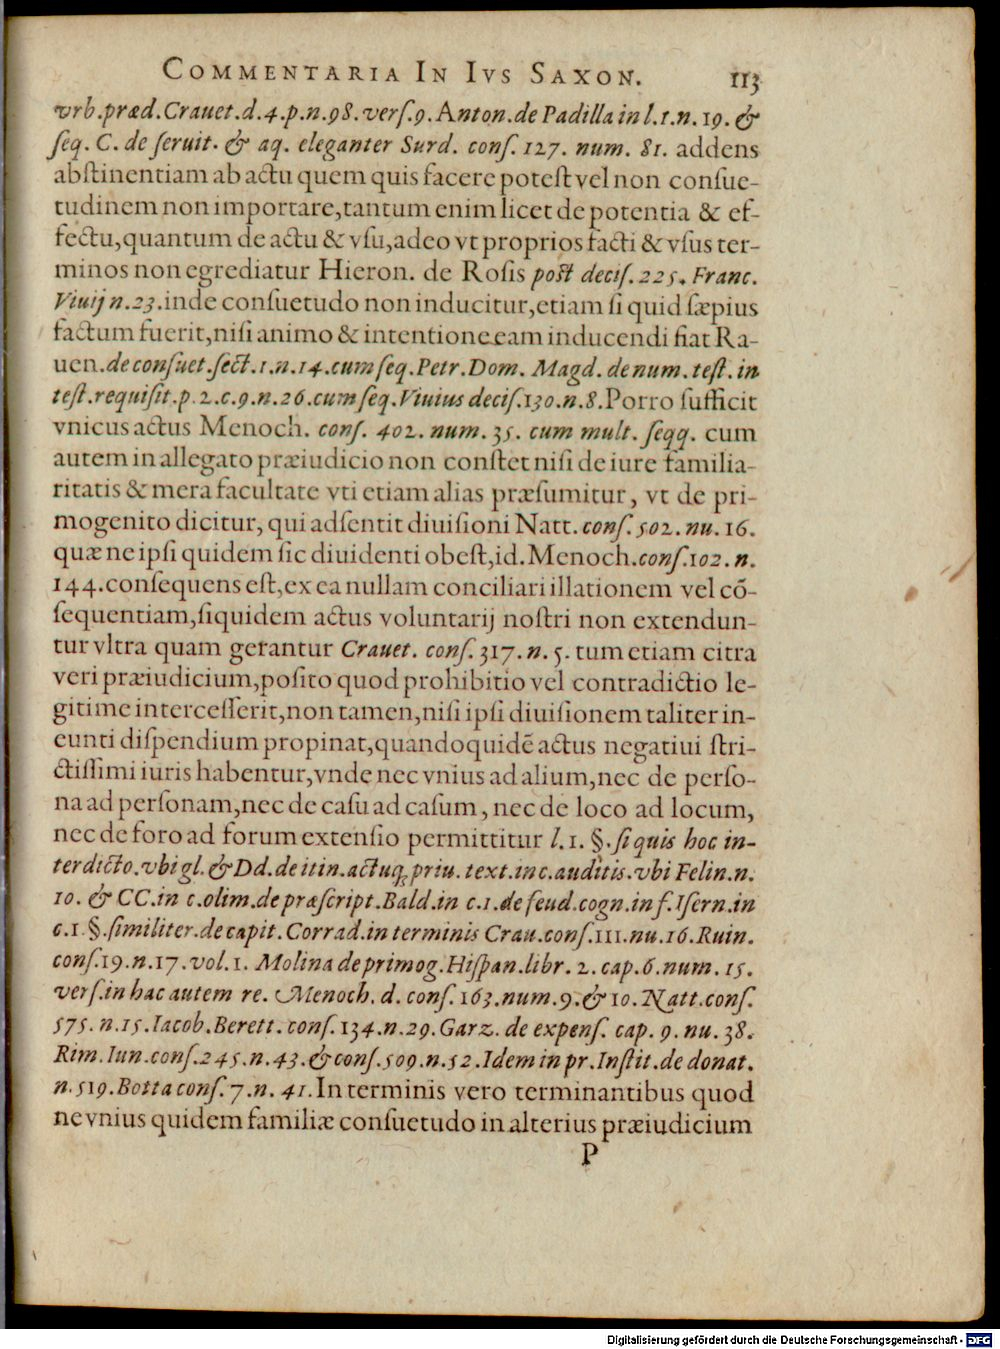 COMMENTARIA IN IVS SAXON. 113
vrb.præd.Crauet.d.4.p.n.98.verſ.9.Anton.de Padilla in l.1.n.19.&
ſeq. C. de ſeruit. & aq. eleganter Surd. conſ. 127. num. 81. addens
abſtinentiam ab actu quem quis facere poteſt vel non conſue-
tudinem non importare,tantum enim licet de potentia & ef-
fectu,quantum de actu & vſu,adeo vt proprios facti & vſus ter-
minos non egrediatur Hieron. de Roſis poſt deciſ. 225. Franc.
Viuij n.23.inde conſuetudo non inducitur,etiam ſi quid ſæpius
factum fuerit,niſi animo & intentione eam inducendi fiat Ra-
uen.de conſuet.ſect.1.n.14.cum ſeq.Petr.Dom. Magd. de num. teſt. in
teſt.requiſit.p.2.c.9.n.26.cum ſeq.Viuius deciſ.130.n.8.Porro ſufficit
vnicus actus Menoch. conſ. 402. num. 35. cum mult. ſeqq. cum
autem in allegato præiudicio non conſtet niſi de iure familia-
ritatis & mera facultate vti etiam alias præſumitur, vt de pri-
mogenito dicitur, qui adſentit diuiſioni Natt. conſ. 502. nu. 16.
quæ ne ipſi quidem ſic diuidenti obeſt,id. Menoch.conſ.102.n.
144.conſequens eſt,ex ea nullam conciliari illationem vel cõ-
ſequentiam,ſiquidem actus voluntarij noſtri non extendun-
tur vltra quam gerantur Crauet. conſ. 317. n. 5. tum etiam citra
veri præiudicium,poſito quod prohibitio vel contradictio le-
gitime interceſſerit,non tamen,niſi ipſi diuiſionem taliter in-
eunti diſpendium propinat,quandoquidẽ actus negatiui ſtri-
ctiſſimi iuris habentur,vnde nec vnius ad alium,nec de perſo-
na ad perſonam,nec de caſu ad caſum, nec de loco ad locum,
nec de foro ad forum extenſio permittitur l. 1. §. ſi quis hoc in-
terdicto.vbi gl. & Dd. de itin.actuq́;priu. text.in c.auditis.vbi Felin.n.
10. & CC.in c.olim.de præſcript.Bald.in c.1.de feud.cogn.in f.Iſern.in
c.1.§.ſimiliter.de capit.Corrad.in terminis Crau.conſ.111.nu.16.Ruin.
conſ.19.n.17.vol.1. Molina de primog.Hiſpan.libr. 2. cap.6.num. 15.
verſ.in hac autem re. Menoch. d. conſ. 163.num.9.& 10. Natt.conſ.
575. n.15.Iacob.Berett. conſ. 134.n.29.Garz. de expenſ. cap. 9. nu. 38.
Rim.Iun.conſ.245.n.43.& conſ.509.n.52.Idem in pr.Inſtit.de donat.
n.519.Botta conſ.7.n. 41.In terminis vero terminantibus quod
ne vnius quidem familiæ conſuetudo in alterius præiudicium
P
Digitalisierung gefördert durch die Deutsche Forschungsgemeinschaft - DFG